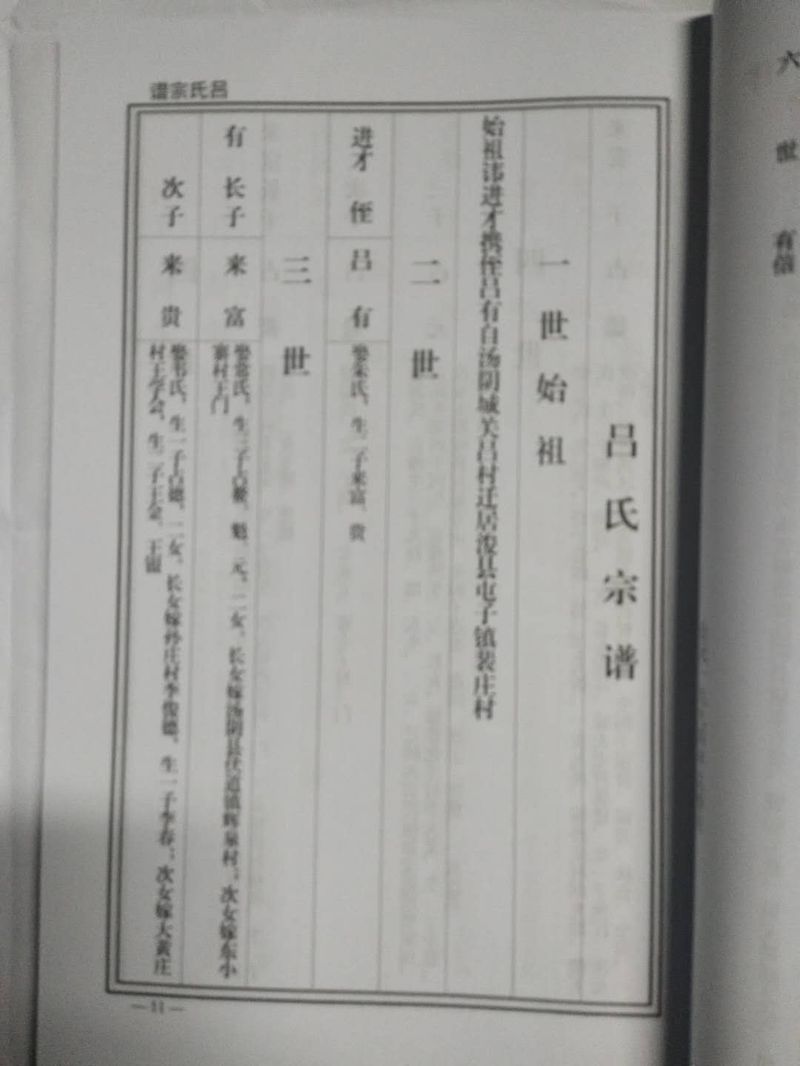 吕氏宗谱
吕氏宗谱
一世始祖
始祖讳进才携侄吕有自汤阴城关吕村迁居浚县屯子镇裴庄村
二世
进才 侄 吕有 娶朱氏，生二子来富、贵
三世
有 长子 来富 娶常氏，生三子占鳌、魁、元。二女，长女嫁汤阴县伏道镇辉泉村；次女嫁东小
寨村王门
次子 来贵 娶韦氏，生一子占德。二女，长女嫁孙庄村李俊德，生一子李春；次女嫁大黄庄
村王学会，生二子王金、王银
— 11 —
六世
有信